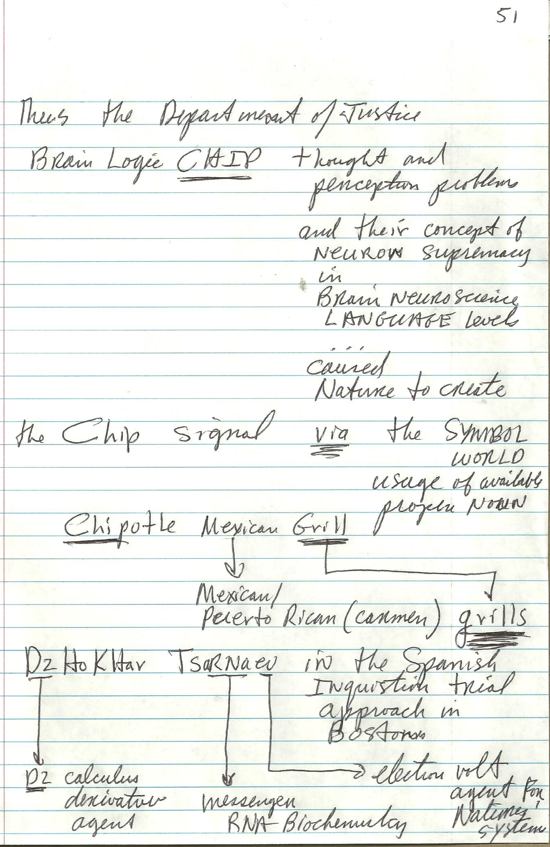 51
Thus the Department of Justice
Brain Logic CHIP thought and
perception problems
and their concept of
NEURON supremacy
in
Brain NEUROscience
LANGUAGE levels
....
caused
Nature to create
the Chip signal via the SYMBOL
WORLD
usage of available
proper NOUN
Chipotle Mexican Grill
Mexican/
Puerto Rican (carmen) grills
DzHoKHar TsaRNaev in the Spanish
Inquistion trial
approach in
Boston
Dz calculus
derivative
agent
messenger
RNA Biochemistry
electron volt
agent for
Nature's
system